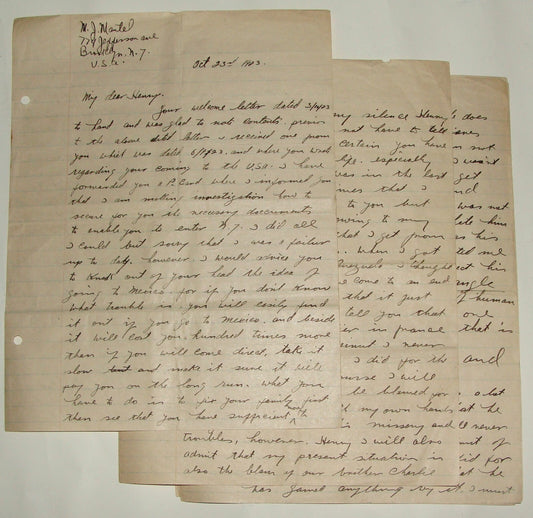 M. J. Mantel
774 Jefferson ave
Brooklyn. N. Y.
U. S. a.
Oct 23rd 1923.
My dear Henry.
Your welcome letter dated
to hand and was glad to note contents. previous
to the above letter I received one from
you which was datd 6/9/23. and where you wrote
regarding your coming to the U.S.A. I have
forwarded you a P. Card where I informed you
that I am making investigation how to
secure for you the necessary documents
to enable you to enter N. Y. I did all
I could but sorry that I was a failure
up to day. however. I would advice you
to knock out of your head the idea of
going to Mexico. for if you don't know
what trouble is you will easily find
it out if you go to Mexico. and beside
it will cost you hundred times more
than if you will come direct, take it
slow and make it sure it will
pay you on the long run. what you
have to do is to fix your family first
then see that you have sufficient money
my silence Henry
not have to tell
Certain you have
life. especially
was in the last
times that I
to you but
owing to my
that I get from
. When I got
I thought
come to an end
that it just
tell you that
in france
I never
I did for the
I will
be blamed for.
my own hands
missery and
troubles, however. Henry I will also
admit that my present situation is
also the blam of our brother Charlie
does
not
I wasn't
get
was not
him
his
me
his
human
one
that is
and
a lot
at he
never
of
did for
at he
has gained anything by it. I must